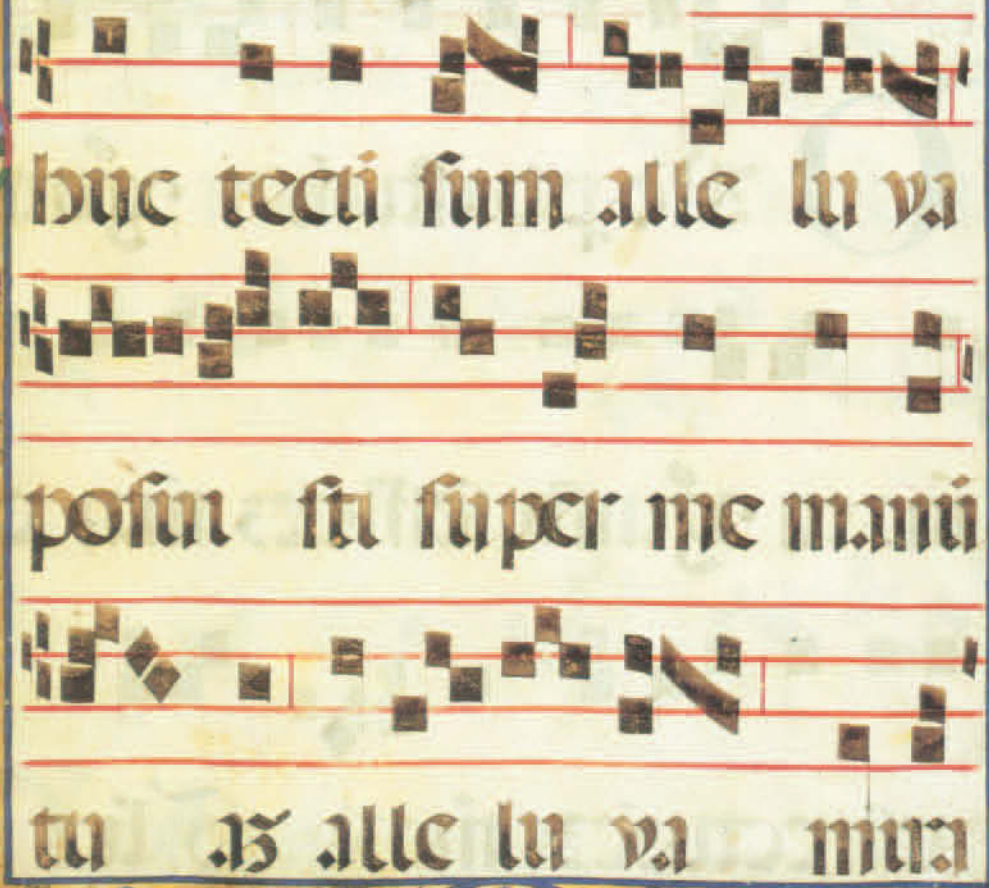 huc tecū sum alle lu ya
posui sti super me manū
tu aʒ alle lu ya mira